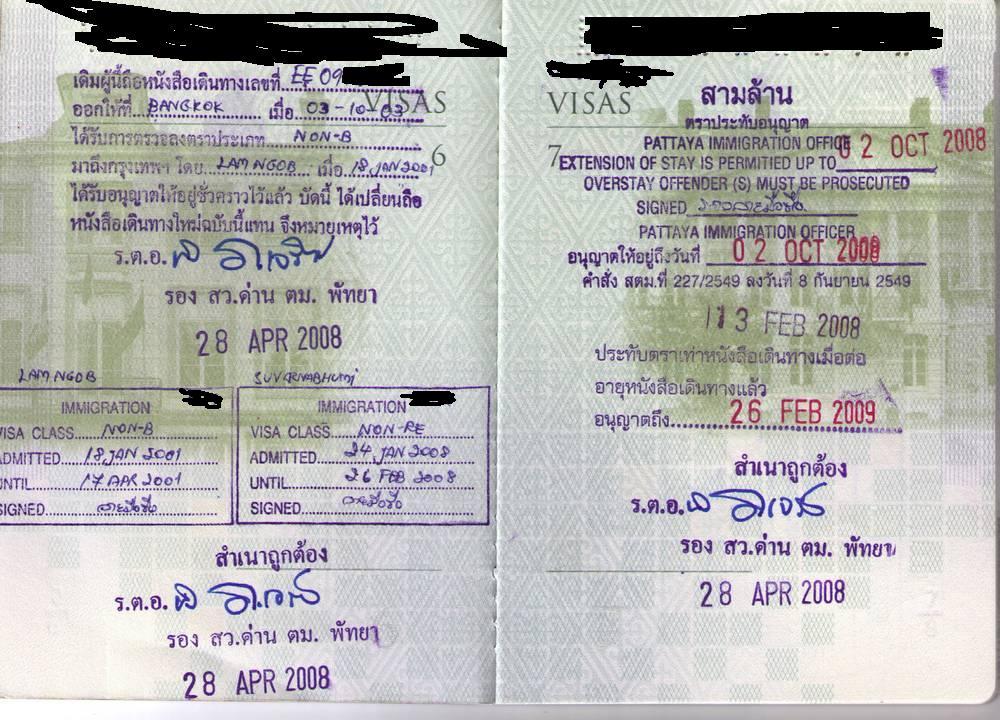 เดิมผู้นี้ถือหนังสือเดินทางเลขที่ EE09
ออกให้ที่ BANGKOK เมื่อ 03-10-03
VISAS
ได้รับการตรวจลงตราประเภท NON-B
6
มาถึงกรุงเทพฯ โดย LAM NGOB เมื่อ 18 JAN 2001
ได้รับอนุญาตให้อยู่ชั่วคราวไว้แล้ว บัดนี้ ได้เปลี่ยนถือ
หนังสือเดินทางใหม่ฉบับนี้แทน จึงหมายเหตุไว้
ร.ต.อ.
รอง สว.ด่าน ตม. พัทยา
28 APR 2008
LAM NGOB
IMMIGRATION
VISA CLASS NON-B
ADMITTED 18 JAN 2001
UNTIL 17 APR 2001
SIGNED ลายมือชื่อ
SUVARNABHUMI
IMMIGRATION
VISA CLASS NON-RE
ADMITTED 24 JAN 2008
UNTIL 26 FEB 2008
SIGNED ลายมือชื่อ
สำเนาถูกต้อง
ร.ต.อ.
รอง สว.ด่าน ตม. พัทยา
28 APR 2008
VISAS
7
สามล้าน
ตราประทับอนุญาต
PATTAYA IMMIGRATION OFFICE
EXTENSION OF STAY IS PERMITIED UP TO 02 OCT 2008
OVERSTAY OFFENDER (S) MUST BE PROSECUTED
SIGNED ลายมือชื่อ
PATTAYA IMMIGRATION OFFICER
อนุญาตให้อยู่ถึงวันที่ 02 OCT 2008
คำสั่ง สตม.ที่ 227/2549 ลงวันที่ 8 กันยายน 2549
13 FEB 2008
ประทับตราเท่าหนังสือเดินทางเมื่อต่อ
อายุหนังสือเดินทางแล้ว
อนุญาตถึง 26 FEB 2009
สำเนาถูกต้อง
ร.ต.อ.
รอง สว.ด่าน ตม. พัทยา
28 APR 2008